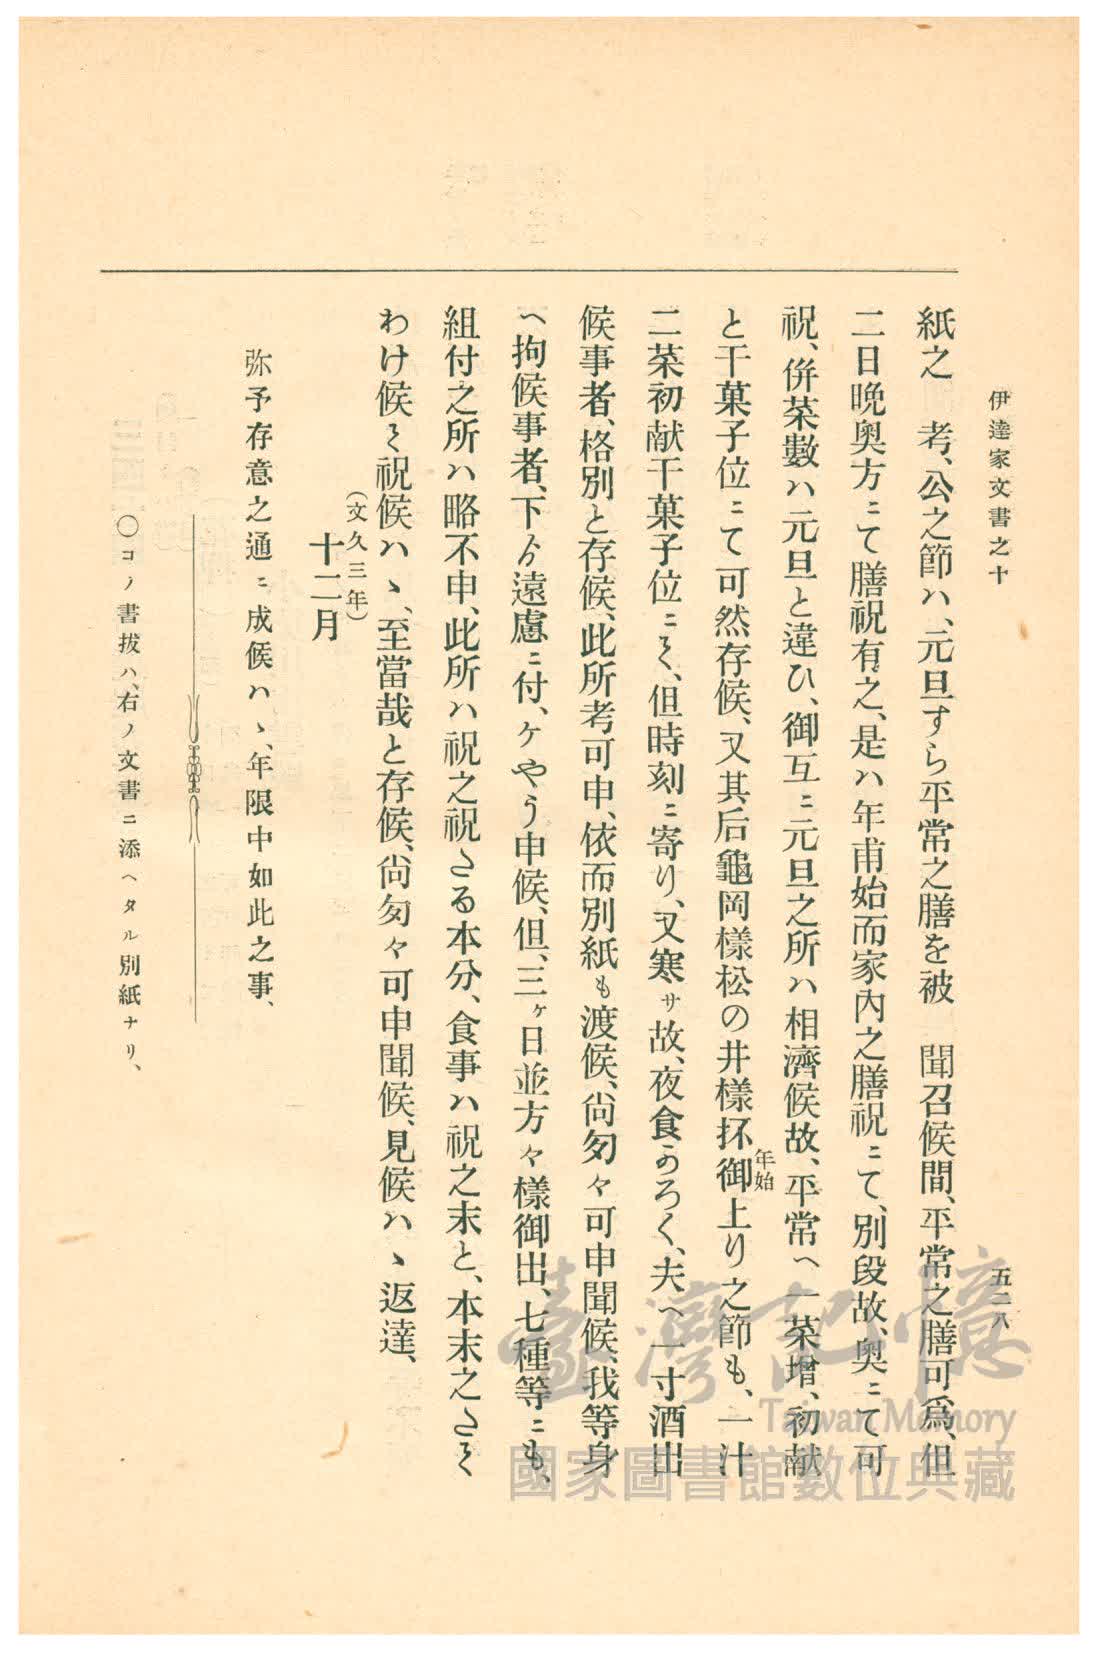 伊達家文書之十
五二八
紙之　考、公之節ハ、元旦すら平常之膳を被　聞召候間、平常之膳可爲、但
二日晩奥方ニて膳祝有之、是ハ年甫始而家內之膳祝ニて、別段故、奥ニて可
祝、併菜數ハ元旦と違ひ、御互ニ元旦之所ハ相濟候故、平常へ一菜增、初献
と干菓子位ニて可然存候、又其后龜岡樣松の井樣抔御上り之節も、一汁
年始
二菜初献干菓子位ニそ、但時刻ニ寄り、又寒サ故、夜食かろく、夫へ一寸酒出
候事者、格別と存候、此所考可申、依而別紙も渡候、尙匇々可申聞候、我等身
へ拘候事者、下ゟ遠慮ニ付、ケやう申候、但、三ヶ日並方々樣御出、七種等ニも、
組付之所ハ略不申、此所ハ祝之祝たる本分、食事ハ祝之末と、本末之たそ
わけ候そ祝候ハヽ、至當哉と存候、尙匇々可申聞候、見候ハヽ返達、
（文久三年）
十二月
弥予存意之通ニ成候ハヽ、年限中如此之事、
○コノ書拔ハ、右ノ文書ニ添ヘタル別紙ナリ、
臺灣記憶
Taiwan Memory
國家圖書館數位典藏